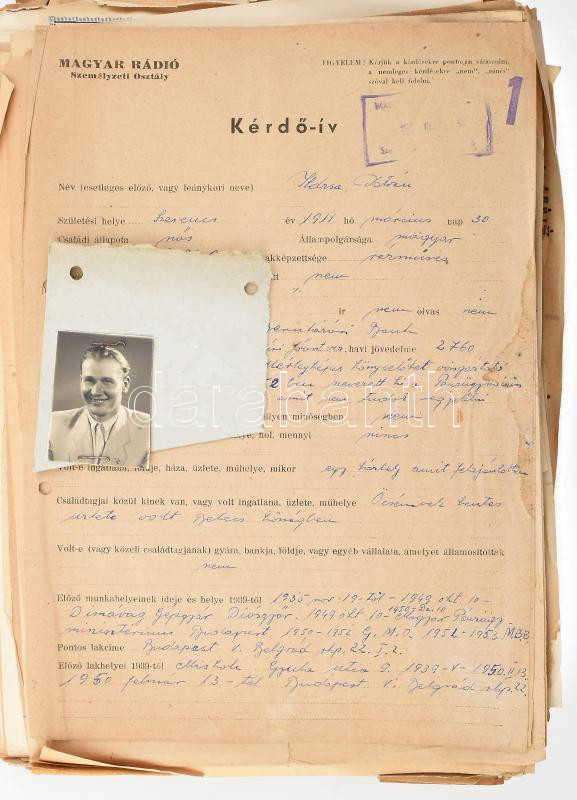 MAGYAR RÁDIÓ
Személyzeti Osztály
FIGYELEM! Kérjük a kérdésekre pontosan válaszolni,
a nemleges kérdésekre „nem", „nincs"
szóval kell felelni.
1
Kérdő-ív
Név (esetleges előző, vagy leánykori neve) István
Születési helye Szerencs év 1911 hó március nap 30
Családi állapota nős Állampolgársága magyar
akképzettsége rézműves
nem
ír nem olvas nem
Bank
havi jövedelme 2760
könyvelőket
amit nem tudok
milyen minőségben nem
hol, mennyi nincs
Volt-e ingatlana, földje, háza, üzlete, műhelye, mikor egy
Családtagjai közül kinek van, vagy volt ingatlana, üzlete, műhelye Öcsémnek hentes
üzlete volt Bekecs községben
Volt-e (vagy közeli családtagjának) gyára, bankja, földje, vagy egyéb vállalata, amelyet államosítottek
nem
Előző munkahelyeinek ideje és helye 1939-től 1935 nov-19-től - 1949 okt 10-
Dimávag Gépgyár Diósgyőr. 1949 okt 10- Magyar Pénzügy-
minisztérium Budapest 1950-1952 G.M.O. 1952-1953 M.B.B.
Pontos lakcíme Budapest V. Belgrád rkp. 22. I. 2.
Előző lakhelyei 1939-től Miskolc. Gyula utca 9. 1939-V-1950.II.13.
1950 február 13-tól Budapest V. Belgrád rkp. 22.
darabanth